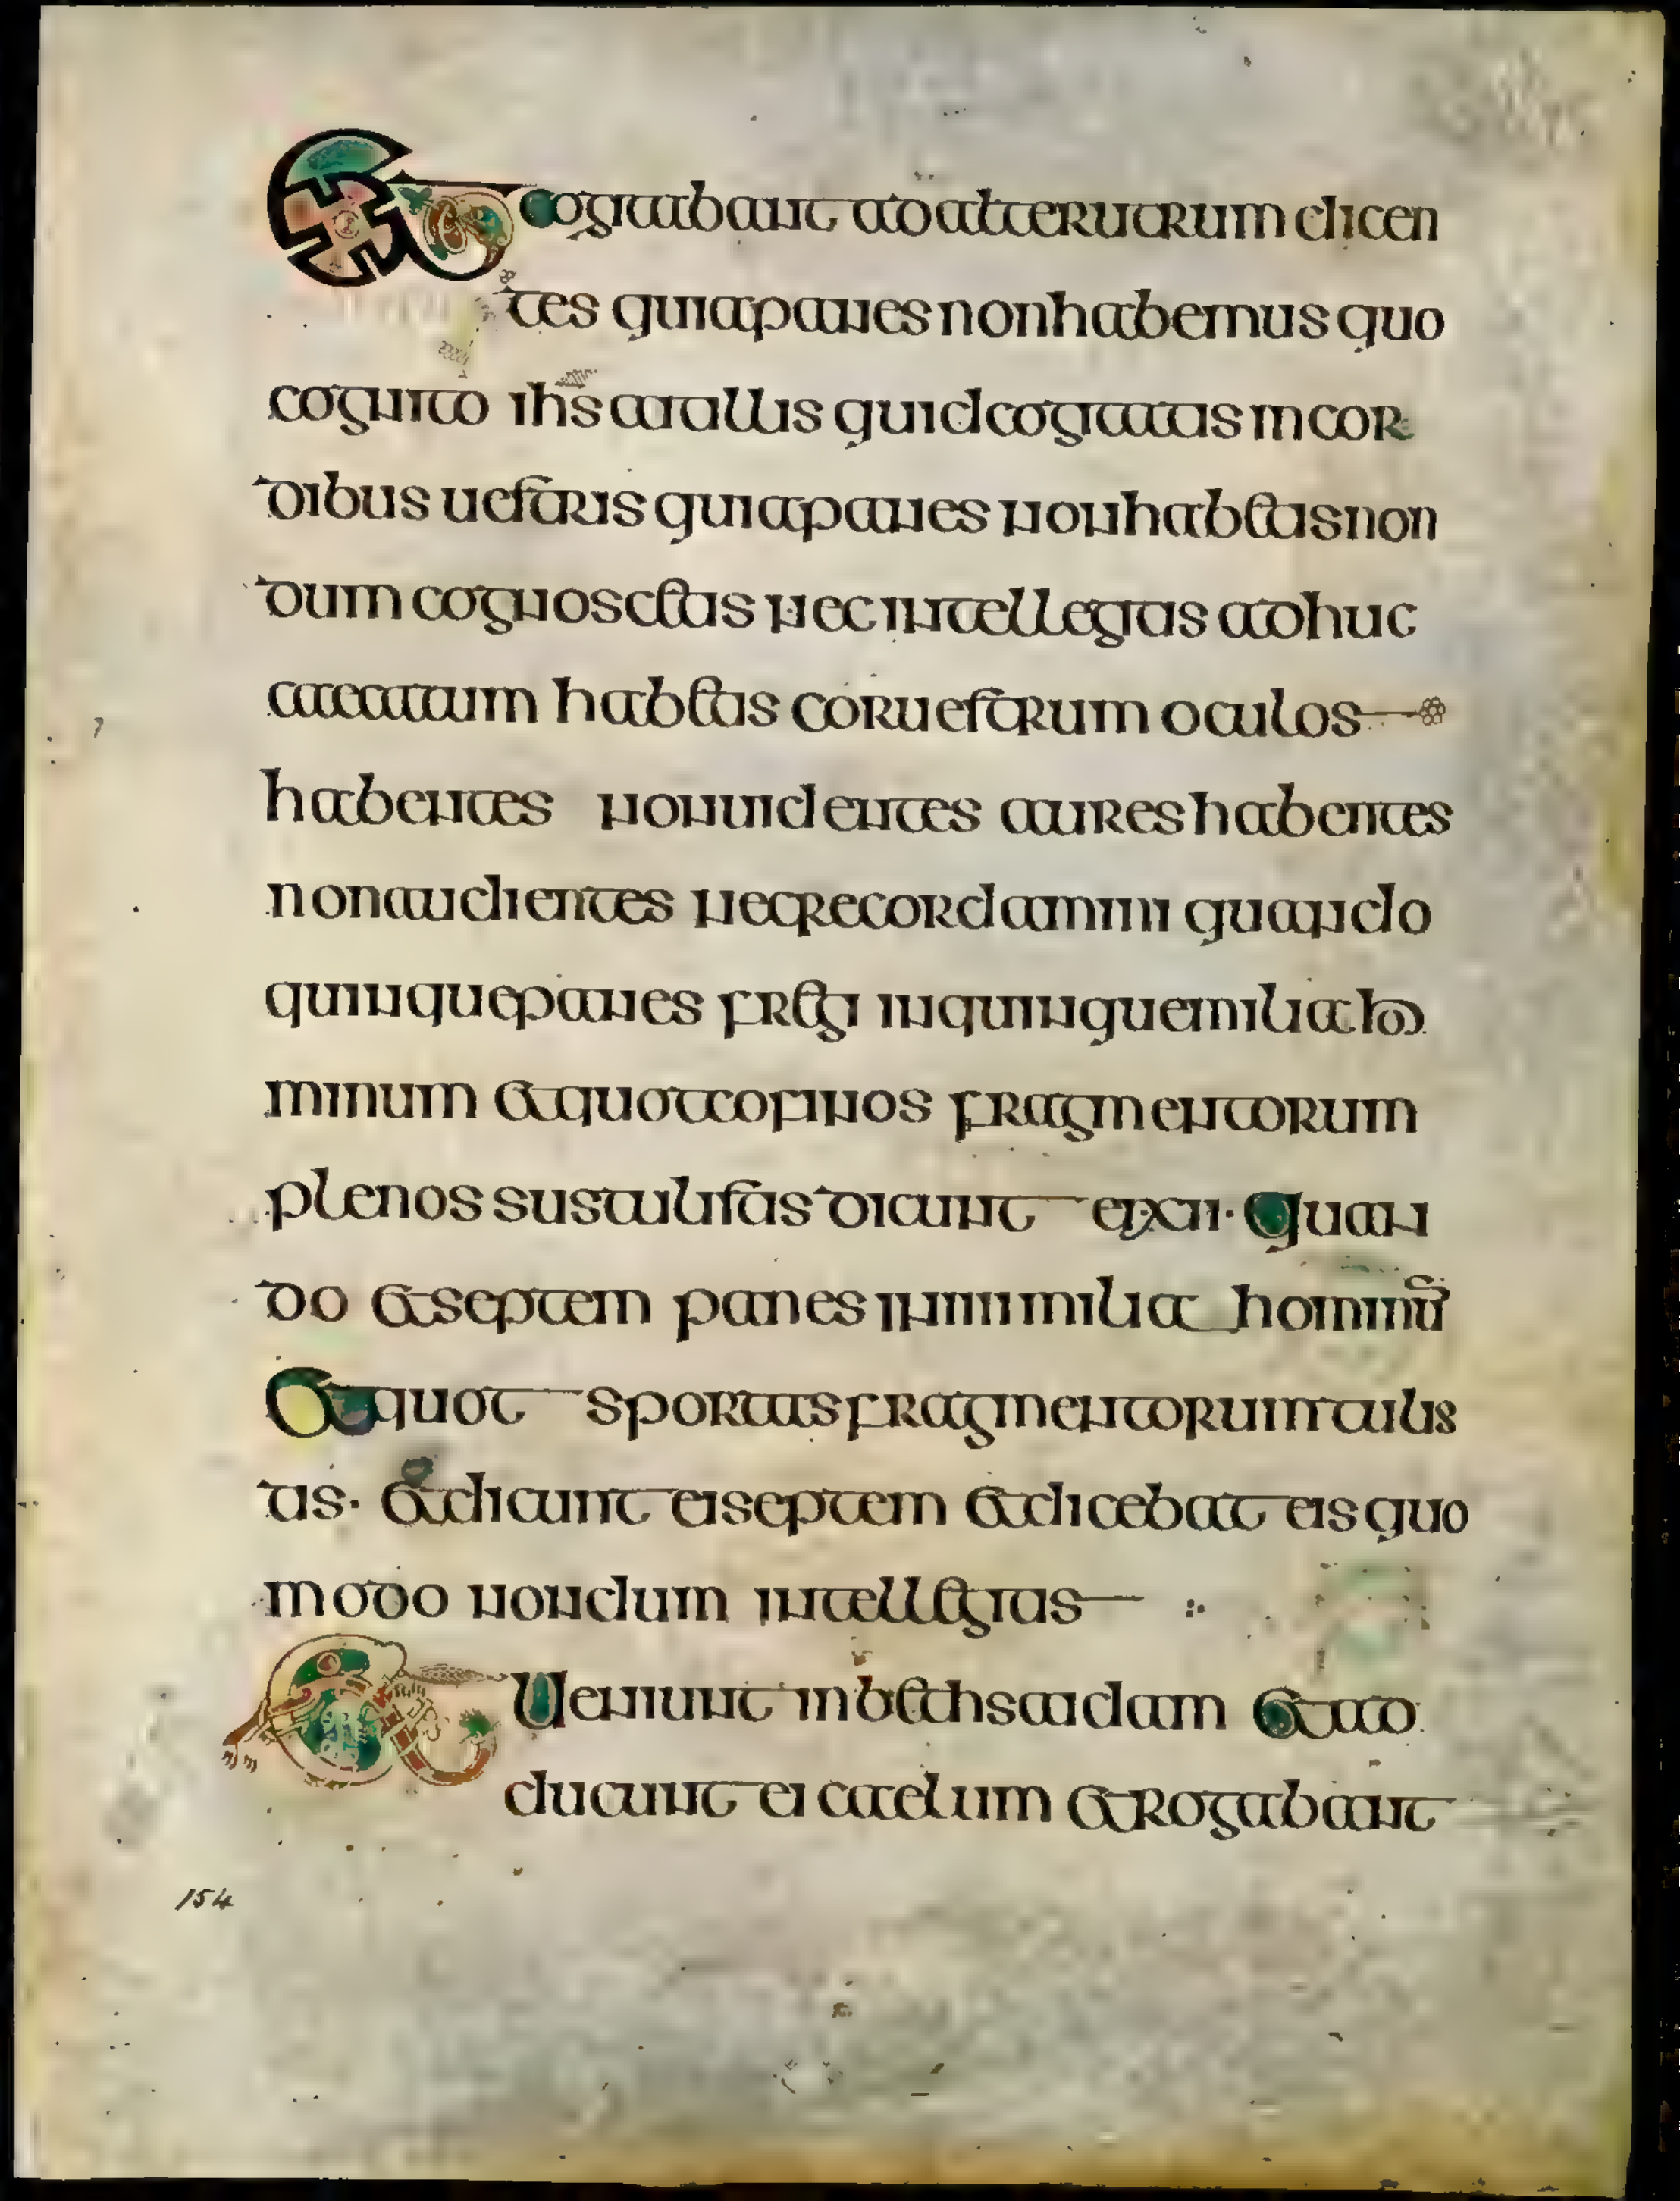 Et cogitabant ad alterutrum dicen
tes quia panes non habemus quo
cognito ihs ait illis quid cogitatis in cor
dibus uestris quia panes non habetis non
dum cognoscetis nec intellegitis adhuc
caecatum habetis cor uestrum oculos
habentes non uidentes aures habentes
non audientes nec recordamini quando
quinque panes fregi in quinque milia ho
minum et quot cofinos fragmentorum
plenos sustulistis dicunt ei xii · Quan
do et septem panes in iiii milia hominū
Et quot sportas fragmentorum tulis
tis · et dicunt ei septem et dicebat eis quo
modo nondum intellegitis
Et Ueniunt in bethsaidam et ad
ducunt ei caecum et rogabant
154